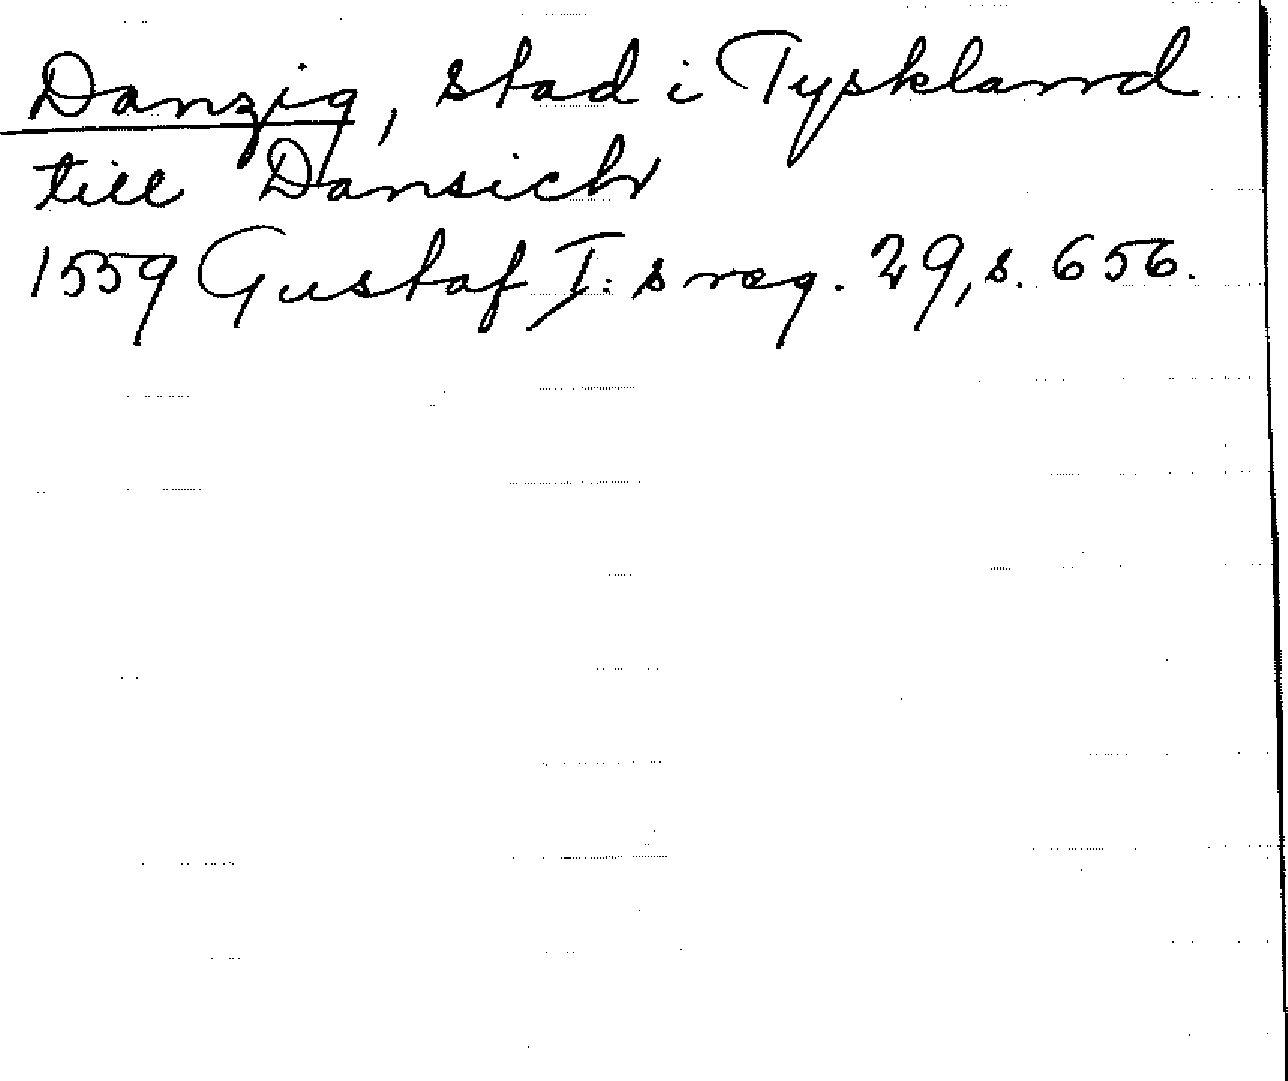 Danzig, stad i Tyskland
till Dansich
1559 Gustaf I:s reg. 29, s. 656.